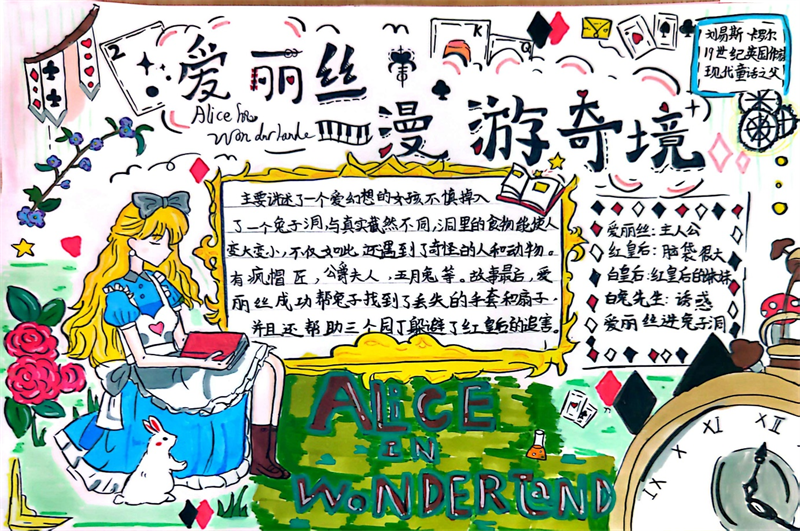 爱丽丝
漫游奇境
Alice In
Wonderlande
2
K
Q
刘易斯·卡罗尔
19世纪英国作家
现代童话之父
主要讲述了一个爱幻想的女孩不慎掉入
了一个兔子洞,与真实截然不同,洞里的食物能使人
变大变小,不仅如此,还遇到了奇怪的人和动物。
有疯帽匠,公爵夫人,三月兔等。故事最后,爱
丽丝成功帮兔子找到了丢失的手套和扇子,
并且还帮助三个园丁躲避了红皇后的追害。
爱丽丝:主人公
红皇后:脑袋很大
白皇后:红皇后的妹妹
白兔先生:诱惑
爱丽丝进兔子洞
ALICE
IN
WONDERLAND
XII
XI
X
IX